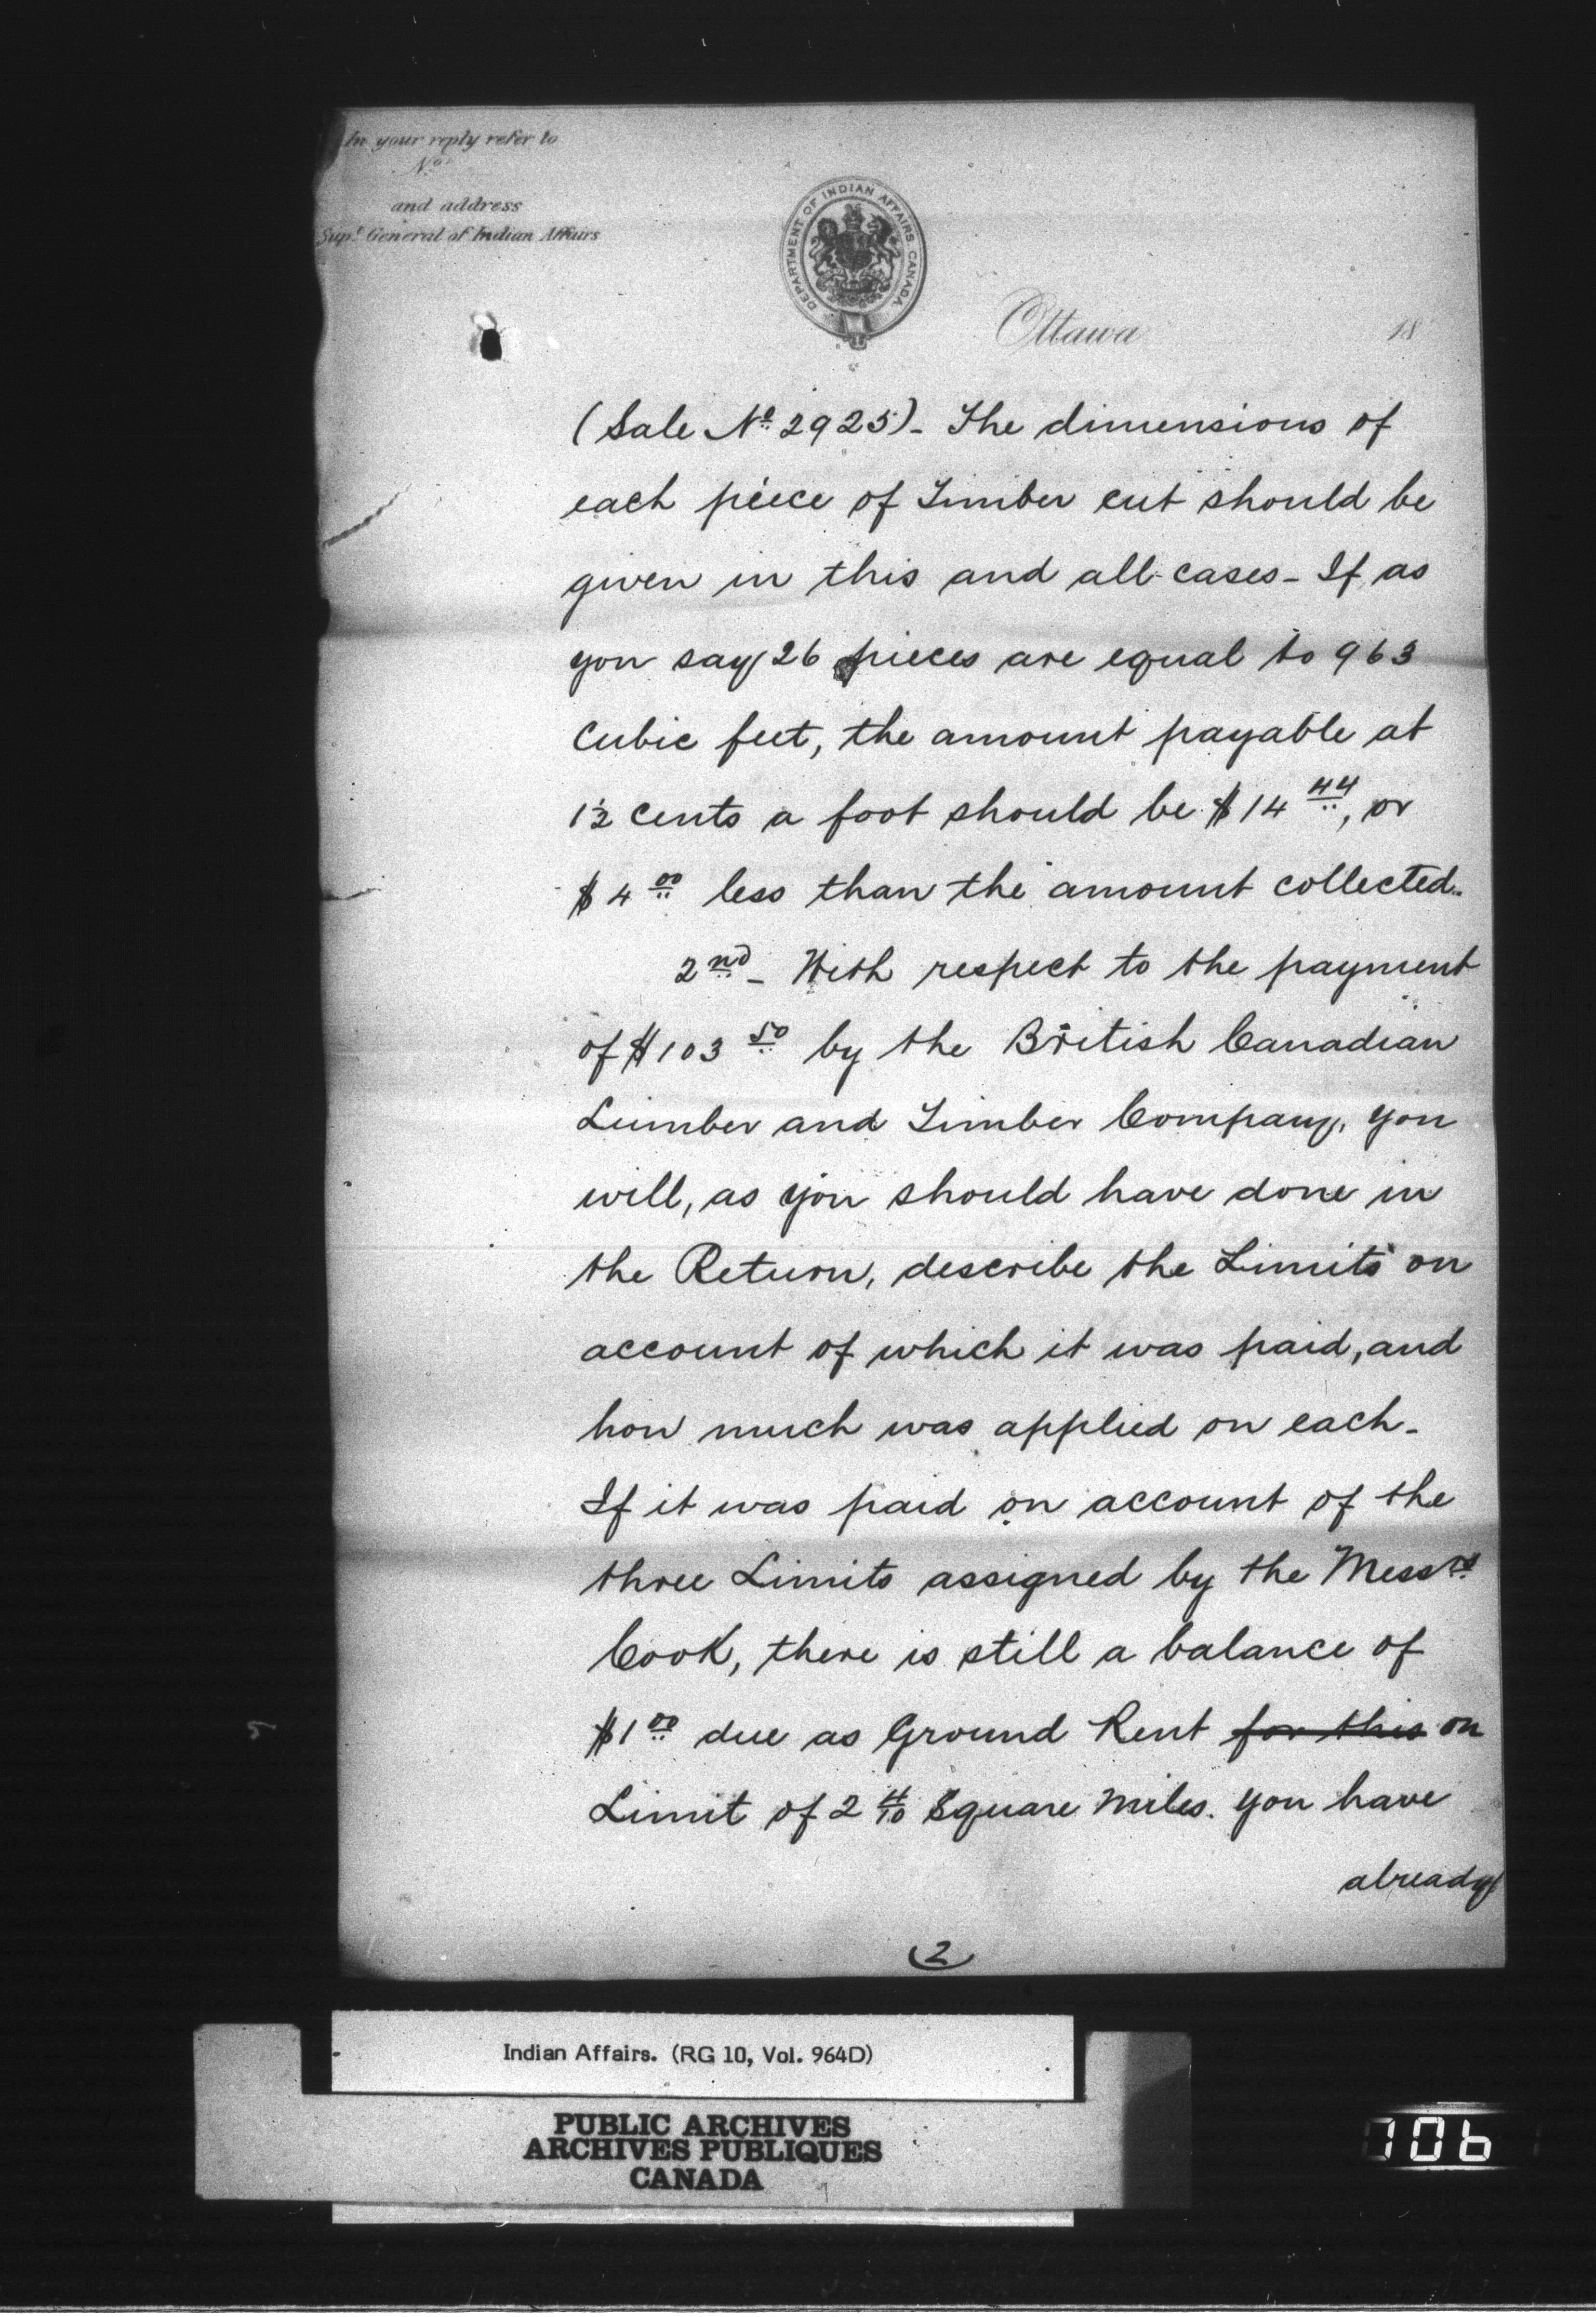 In your reply refer to
No.
and address
Supt. General of Indian Affairs
DEPARTMENT OF INDIAN AFFAIRS CANADA
Ottawa 18
(Sale No. 2925) - The dimensions of
each piece of Timber cut should be
given in this and all cases - If as
you say 26 pieces are equal to 963
Cubic feet, the amount payable at
1½ cents a foot should be $14 44, or
$4 00 less than the amount collected.
2nd - With respect to the payment
of $103 50 by the British Canadian
Lumber and Timber Company, you
will, as you should have done in
the Return, describe the Limits on
account of which it was paid, and
how much was applied on each.
If it was paid on account of the
three Limits assigned by the Messrs
Cook, there is still a balance of
$1 00 due as Ground Rent for this on
Limit of 2 4/10 Square Miles. You have
already
2
Indian Affairs. (RG 10, Vol. 964D)
PUBLIC ARCHIVES
ARCHIVES PUBLIQUES
CANADA
106